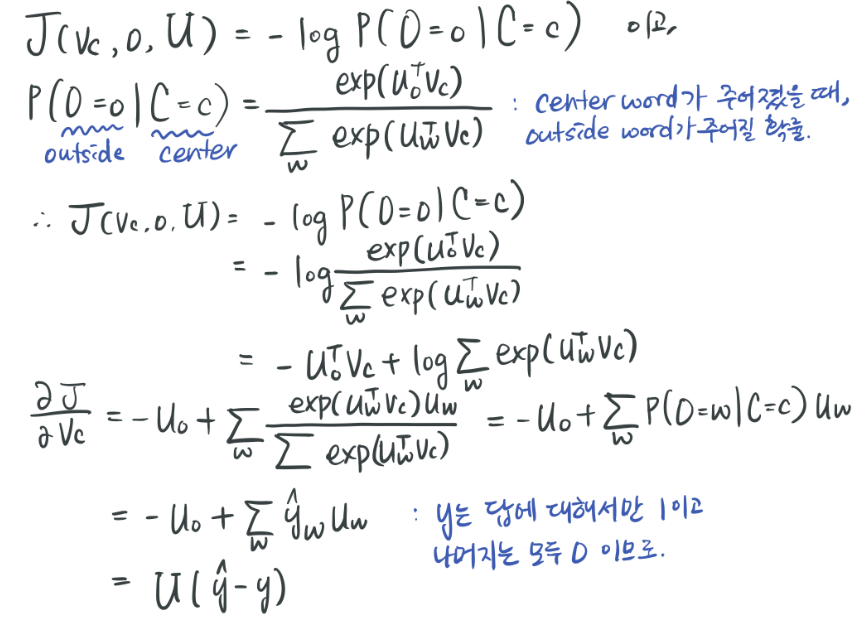 J(Vc, o, U) = - log P(O=o | C=c) 이고,
P(O=o | C=c) = exp(Uo^T Vc) / Σ_w exp(Uw^T Vc) : center word가 주어졌을 때,
outside center outside word가 주어질 확률.
∴ J(Vc, o, U) = - log P(O=o | C=c)
= - log exp(Uo^T Vc) / Σ_w exp(Uw^T Vc)
= - Uo^T Vc + log Σ_w exp(Uw^T Vc)
∂J / ∂Vc = - Uo + Σ_w exp(Uw^T Vc) Uw / Σ exp(Uw^T Vc) = - Uo + Σ_w P(O=w | C=c) Uw
= - Uo + Σ_w ŷw Uw : y는 답에 대해서만 1이고
나머지는 모두 0 이므로.
= U(ŷ - y)